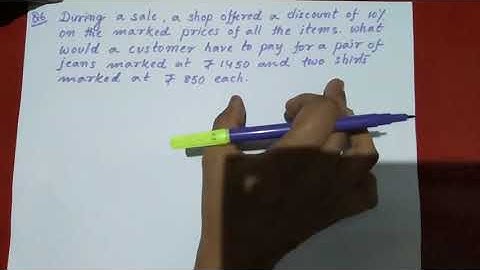 Q6 During a sale, a shop offered a discount of 10%
on the marked prices of all the items. What
would a customer have to pay for a pair of
jeans marked at ₹ 1450 and two shirts
marked at ₹ 850 each.